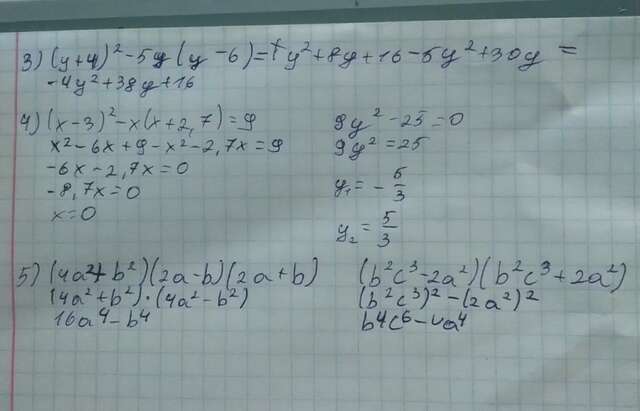 3) (y+4)²-5y(y-6)=y²+8y+16-5y²+30y=
-4y²+38y+16
4) (x-3)²-x(x+2,7)=9
x²-6x+9-x²-2,7x=9
-6x-2,7x=0
-8,7x=0
x=0
9y²-25=0
9y²=25
y₁=-5/3
y₂=5/3
5) (4a²+b²)(2a-b)(2a+b)
(4a²+b²)·(4a²-b²)
16a⁴-b⁴
(b²c³-2a²)(b²c³+2a²)
(b²c³)²-(2a²)²
b⁴c⁶-4a⁴